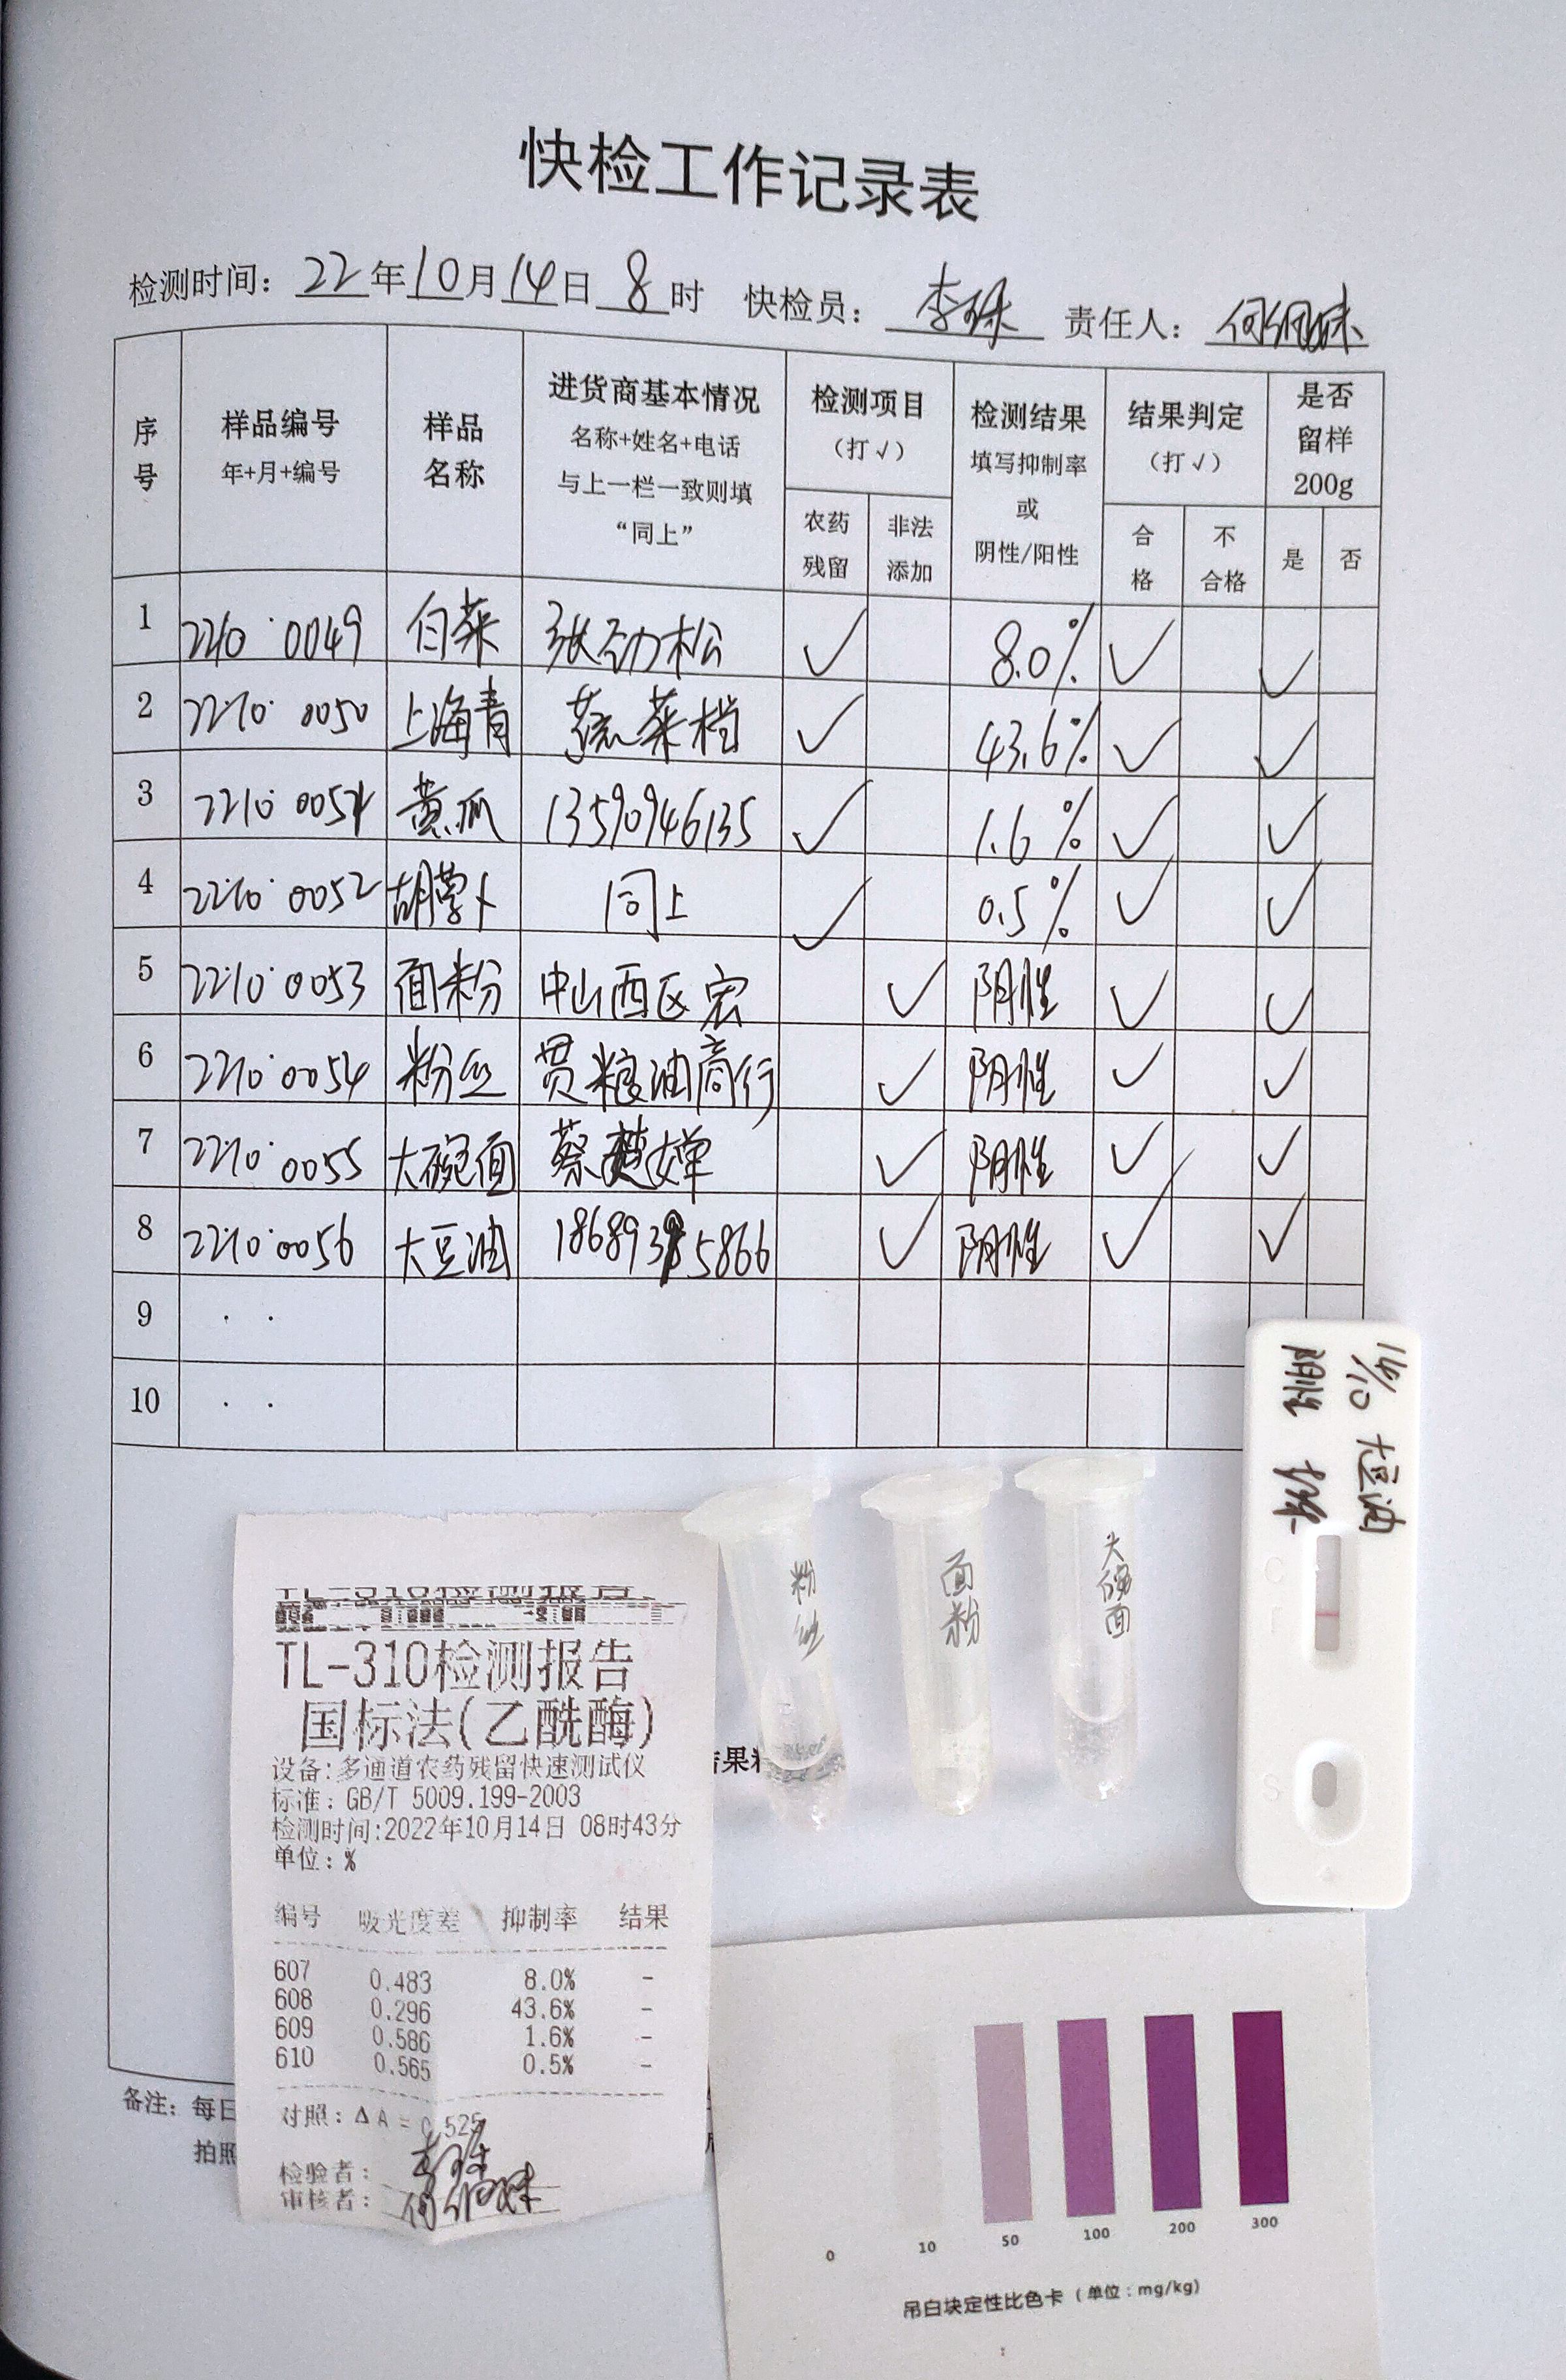 快检工作记录表
检测时间：22年10月14日8时 快检员：李珠 责任人：
序号 样品编号 年+月+编号 样品名称 进货商基本情况 名称+姓名+电话 与上一栏一致则填“同上” 检测项目（打√） 检测结果 填写抑制率或阴性/阳性 结果判定（打√） 是否留样200g
农药残留 非法添加 合格 不合格 是 否
1 2210·0049 白菜 张劲松 √ 8.0% √ √
2 2210·0050 上海青 蔬菜档 √ 43.6% √ √
3 2210·0051 黄瓜 13590946135 √ 1.6% √ √
4 2210·0052 胡萝卜 同上 √ 0.5% √ √
5 2210·0053 面粉 中山西区宏 √ 阴性 √ √
6 2210·0054 粉丝 贯粮油商行 √ 阴性 √ √
7 2210·0055 大碗面 蔡楚婵 √ 阴性 √ √
8 2210·0056 大豆油 √ 阴性 √ √
9 · ·
10 · ·
14/10 大豆油
阴性
C
T
S
粉丝
面粉
大碗面
TL-310检测报告
国标法(乙酰酶)
设备:多通道农药残留快速测试仪
标准：GB/T 5009.199-2003
检测时间:2022年10月14日 08时43分
单位：%
编号 吸光度差 抑制率 结果
607 0.483 8.0% -
608 0.296 43.6% -
609 0.586 1.6% -
610 0.565 0.5% -
对照：ΔA = 0.525
检验者：李珠
审核者：
结果
备注：每日
拍照
0 10 50 100 200 300
吊白块定性比色卡（单位：mg/kg）